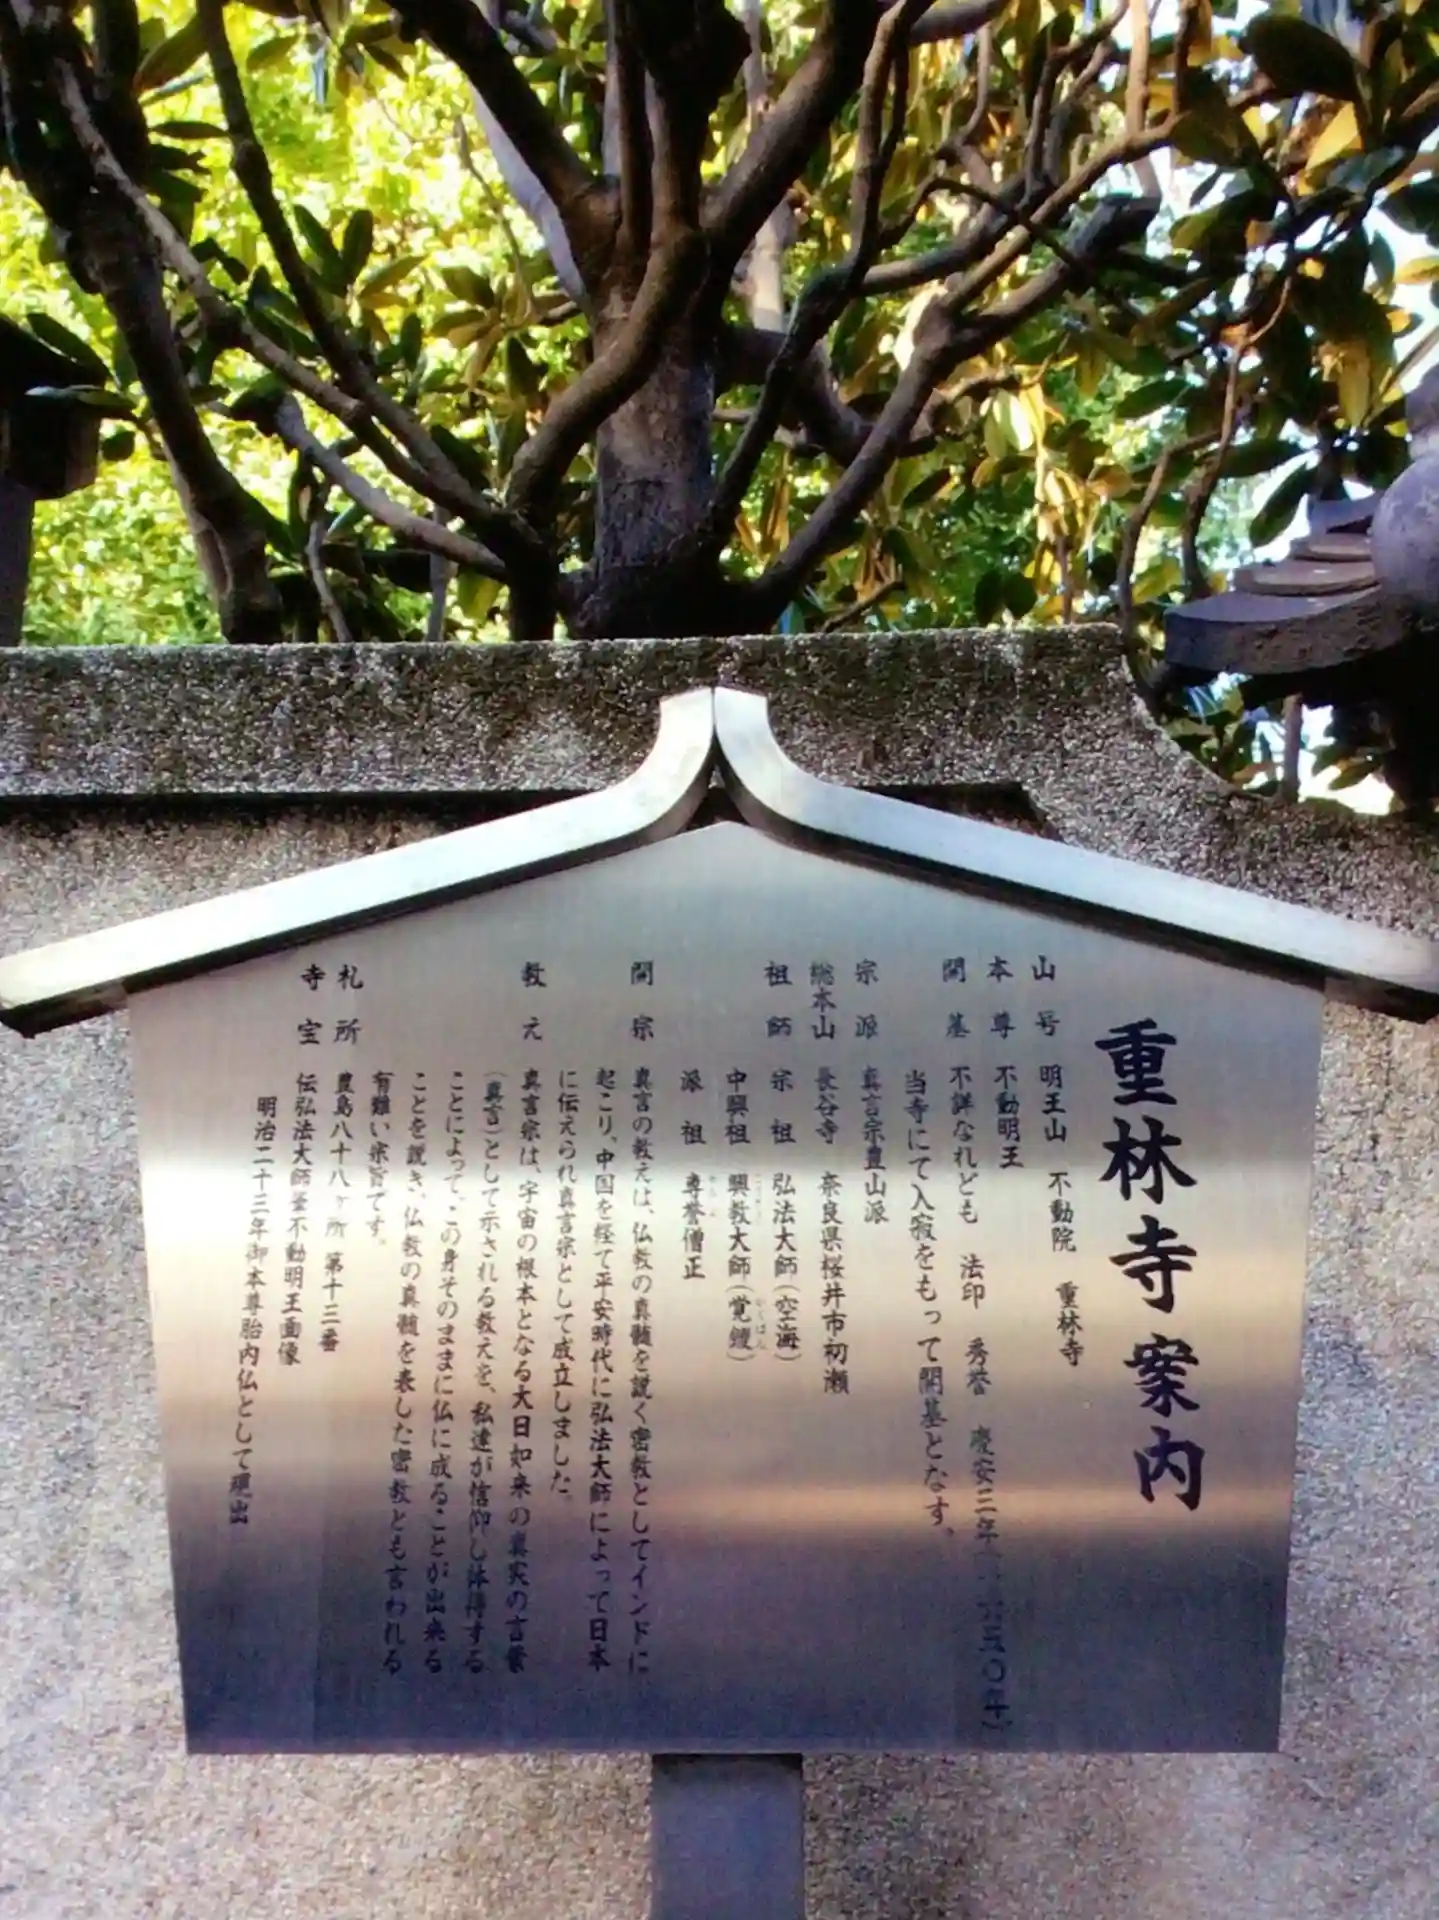 重林寺案内
山号 明王山 不動院 重林寺
本尊 不動明王
開基 不詳なれども 法印 秀誉 慶安三年(一六五〇年)
当寺にて入寂をもって開基となす。
宗派 真言宗豊山派
総本山 長谷寺 奈良県桜井市初瀬
祖師 宗祖 弘法大師(空海)
中興祖 興教大師(覚鑁)
派祖 専誉僧正
開宗 真言の教えは、仏教の真髄を説く密教としてインドに
起こり、中国を経て平安時代に弘法大師によって日本
に伝えられ真言宗として成立しました。
教え 真言宗は、宇宙の根本となる大日如来の真実の言葉
(真言)として示される教えを、私達が信仰し体得する
ことによって、この身そのままに仏に成ることが出来る
ことを説き、仏教の真髄を表した密教とも言われる
有難い宗旨です。
札所 豊島八十八ヶ所 第十三番
寺宝 伝弘法大師筆不動明王画像
明治二十三年御本尊胎内仏として現出